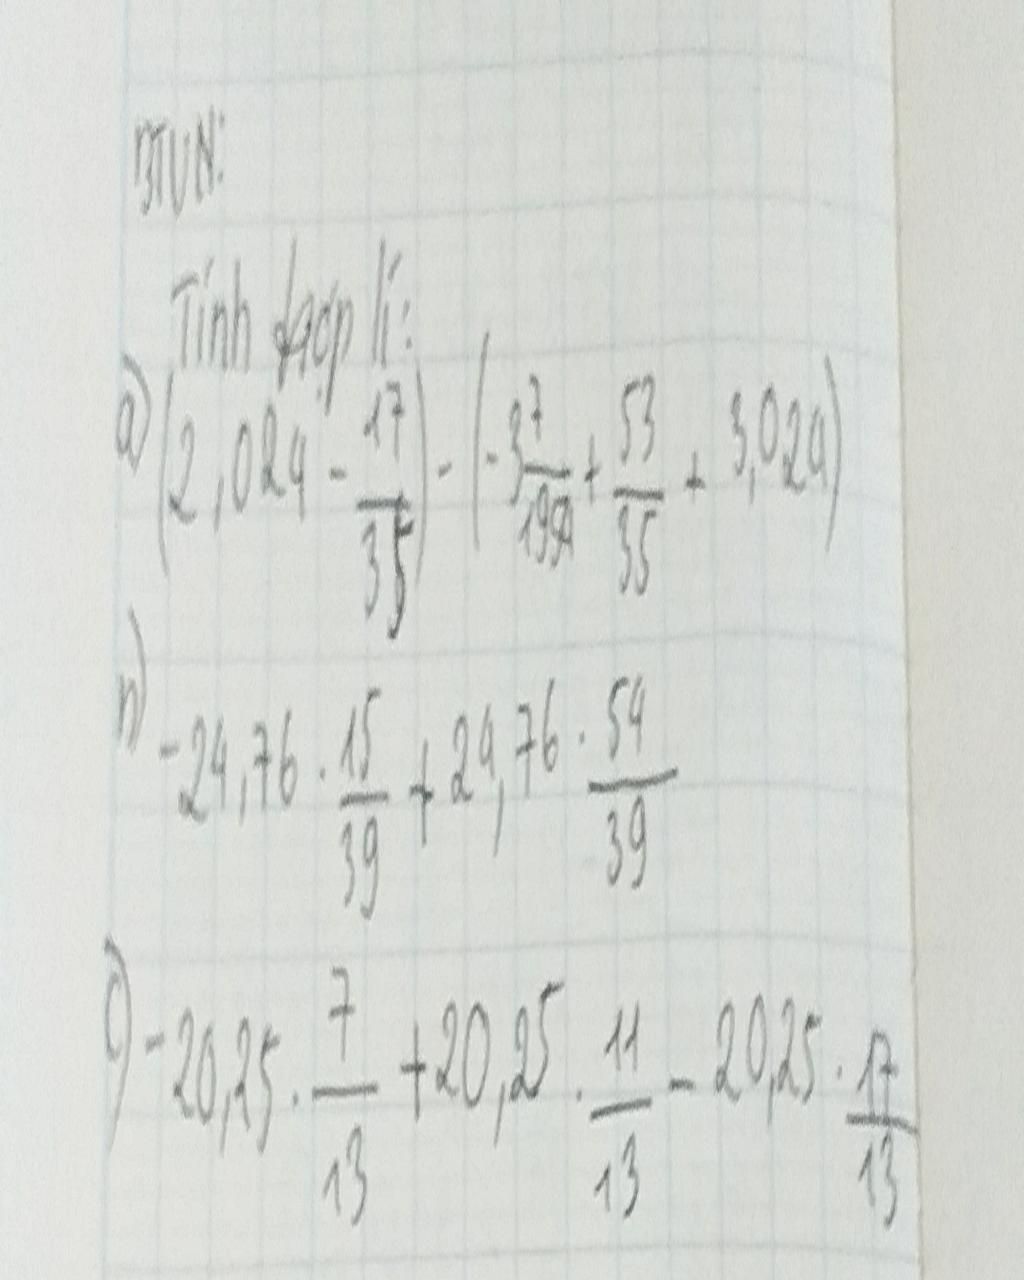 BTVN:
Tính hợp lí:
a) (2,024 - 17/35) - (-3 7/1954 + 53/35 + 3,024)
b) -24,76 . 15/39 + 24,76 . 54/39
c) -20,25 . 7/13 + 20,25 . 11/13 - 20,25 . 17/13